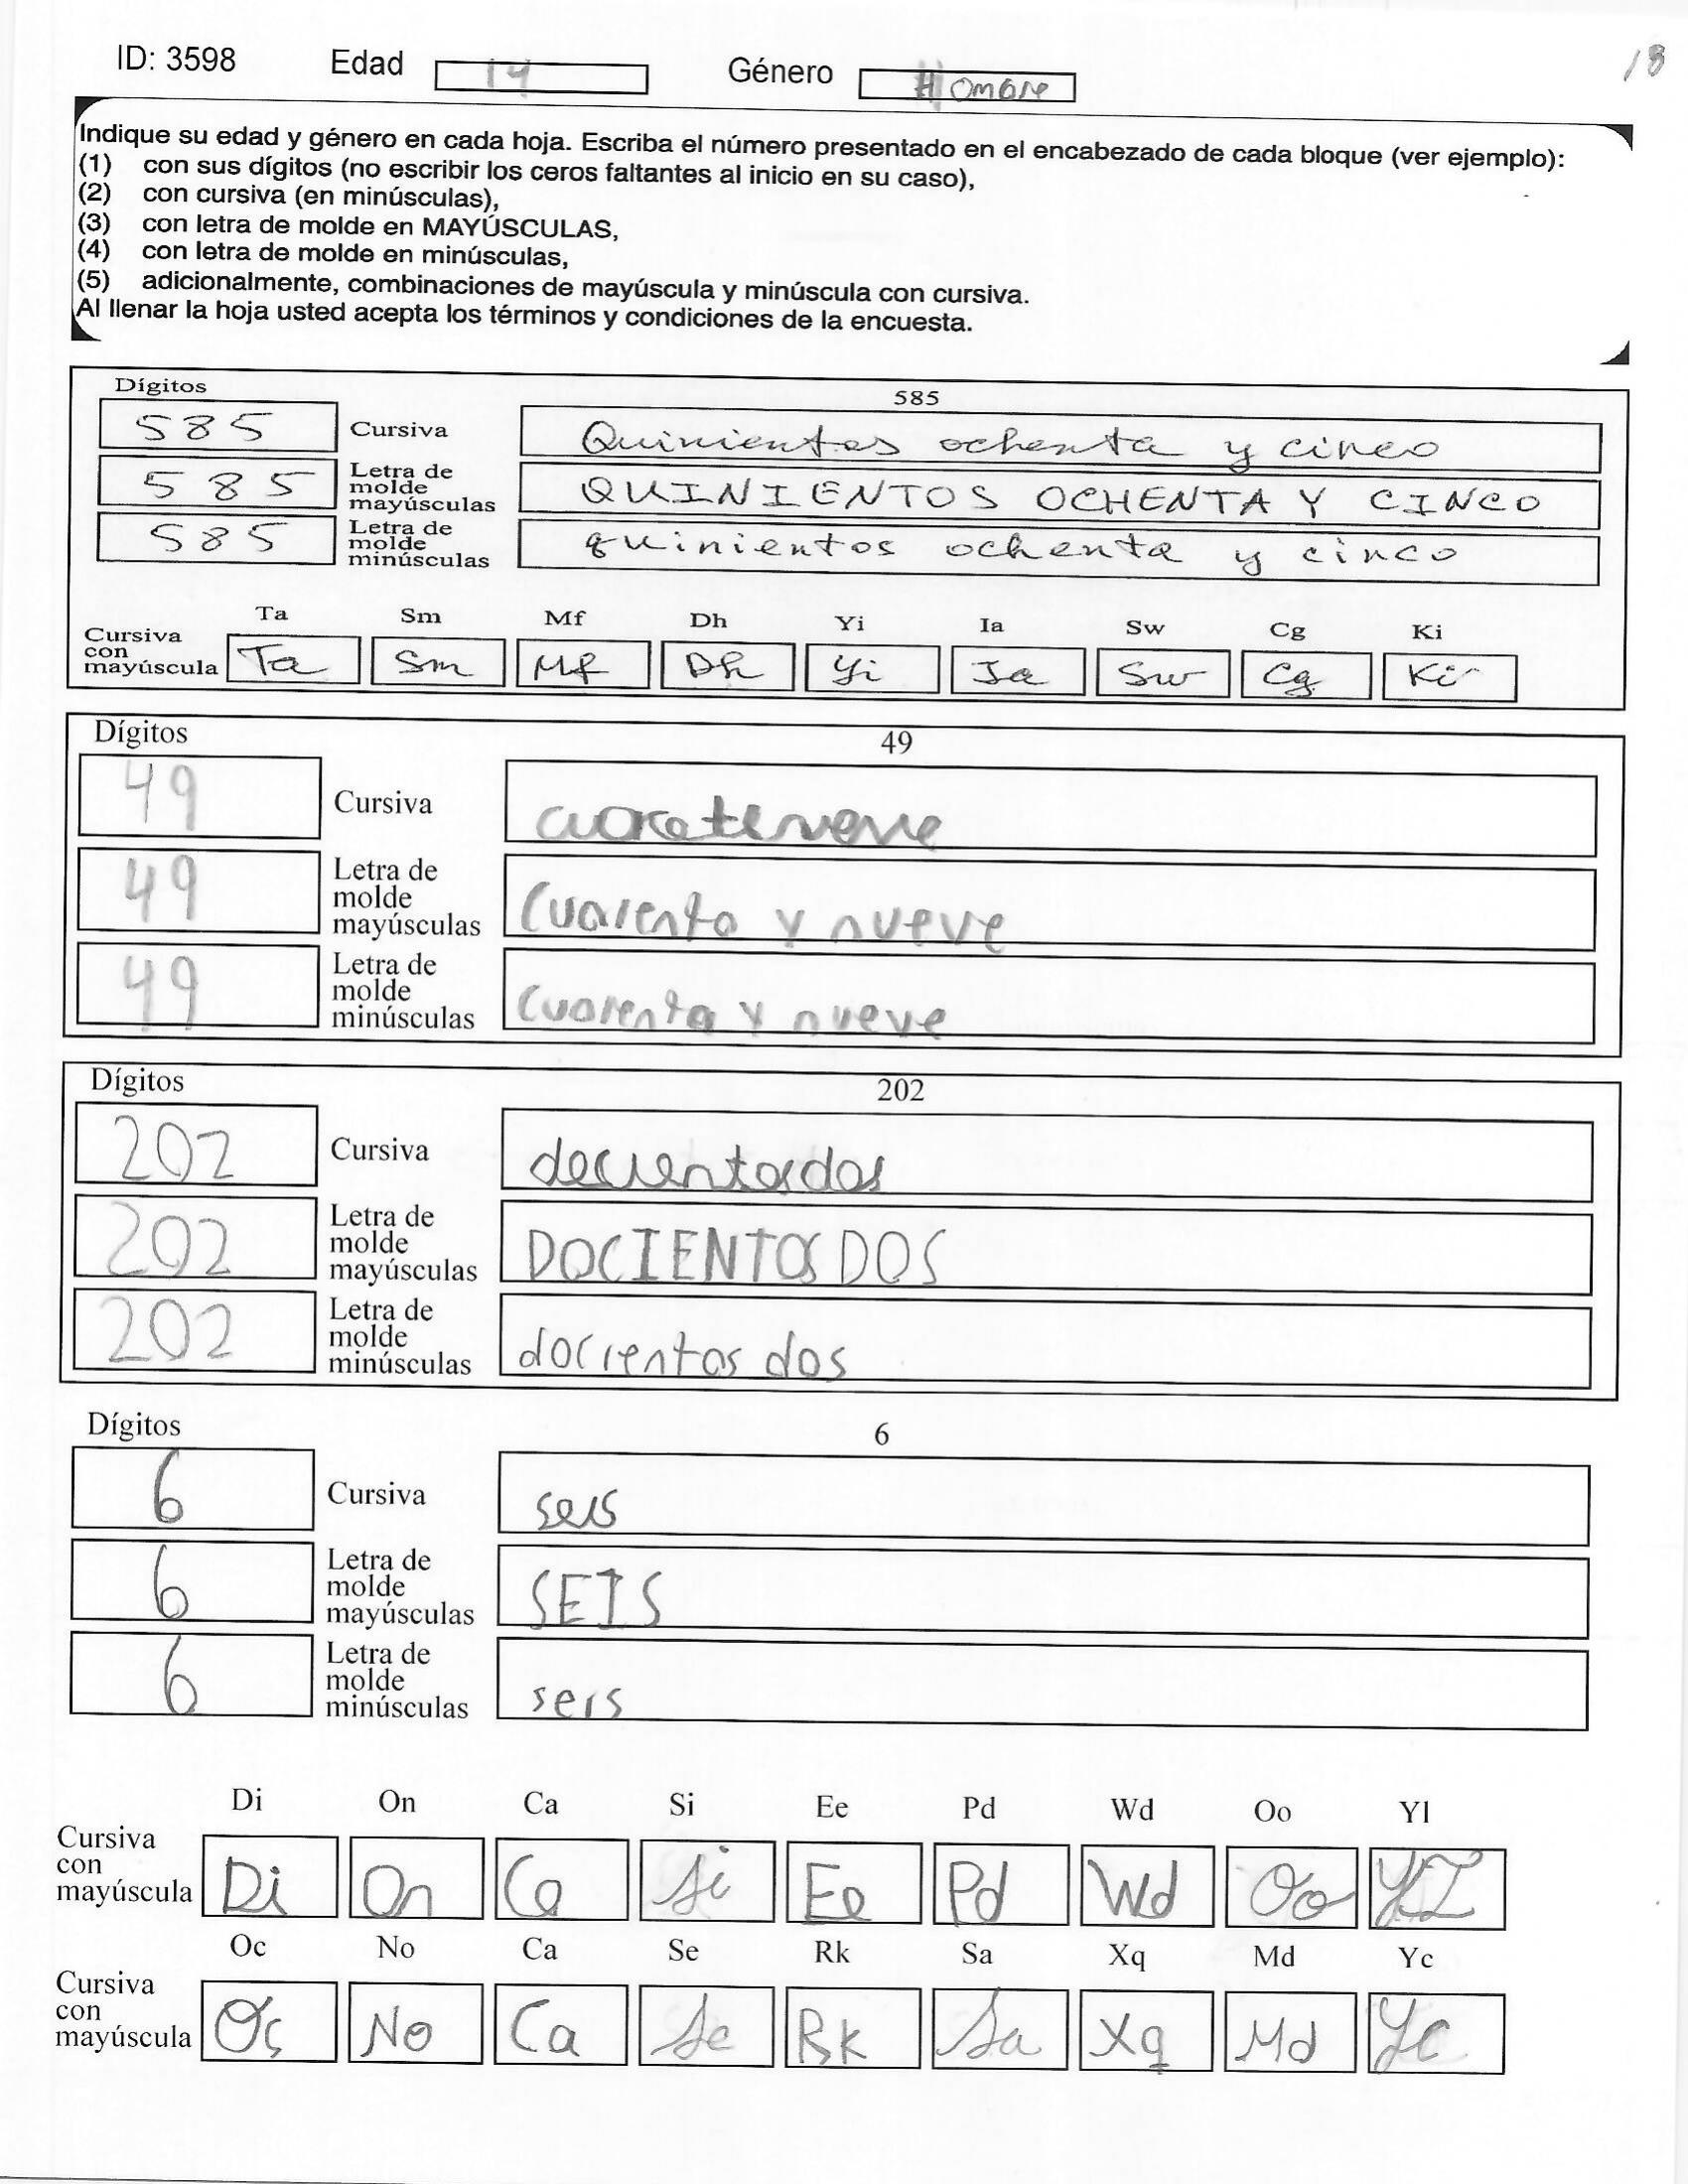 ID: 3598 Edad 14 Género Hombre 18
Indique su edad y género en cada hoja. Escriba el número presentado en el encabezado de cada bloque (ver ejemplo):
(1) con sus dígitos (no escribir los ceros faltantes al inicio en su caso),
(2) con cursiva (en minúsculas),
(3) con letra de molde en MAYÚSCULAS,
(4) con letra de molde en minúsculas,
(5) adicionalmente, combinaciones de mayúscula y minúscula con cursiva.
Al llenar la hoja usted acepta los términos y condiciones de la encuesta.
Dígitos 585
585 Cursiva Quinientos ochenta y cinco
585 Letra de molde mayúsculas QUINIENTOS OCHENTA Y CINCO
585 Letra de molde minúsculas quinientos ochenta y cinco
Ta Sm Mf Dh Yi Ia Sw Cg Ki
Cursiva con mayúscula Ta Sm Mf Dh Yi Ia Sw Cg Ki
Dígitos 49
49 Cursiva
49 Letra de molde mayúsculas Cuarenta y nueve
49 Letra de molde minúsculas cuarenta y nueve
Dígitos 202
202 Cursiva decientosdos
202 Letra de molde mayúsculas DOCIENTOS DOS
202 Letra de molde minúsculas docientos dos
Dígitos 6
6 Cursiva seis
6 Letra de molde mayúsculas SEIS
6 Letra de molde minúsculas seis
Di On Ca Si Ee Pd Wd Oo Yl
Cursiva con mayúscula Di On Ca Si Ee Pd Wd Oo Yl
Oc No Ca Se Rk Sa Xq Md Yc
Cursiva con mayúscula Oc No Ca Se Rk Sa Xq Md Yc